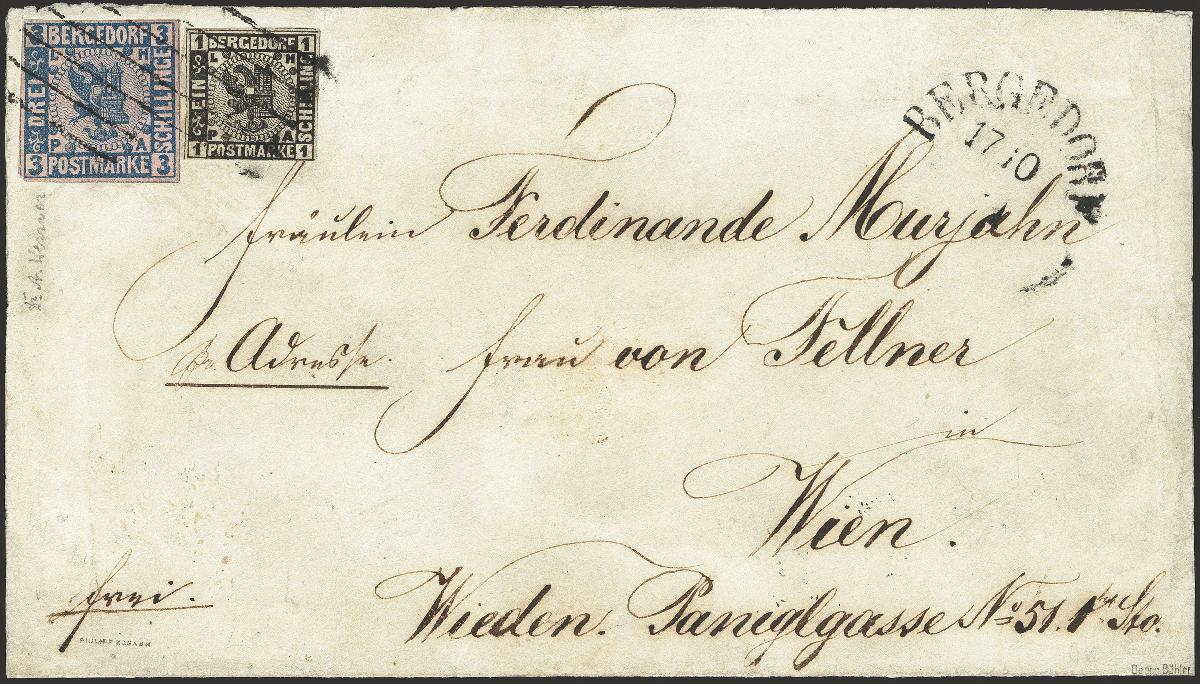 3 BERGEDORF 3
DREI
SCHILLINGE
L H
P A
3 POSTMARKE 3
1 BERGEDORF 1
EIN
SCHILLING
L H
P A
1 POSTMARKE 1
BERGEDORF
17 10
Fräulein Ferdinande Murjahn
Adresse. Frau von Fellner
in
Wien.
frei.
Wieden. Paniglgasse No 51. 1ter Sto.
Georg Bühler